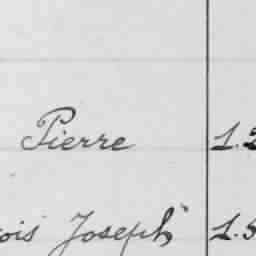 Pierre 1.2
ois Joseph" 1.5